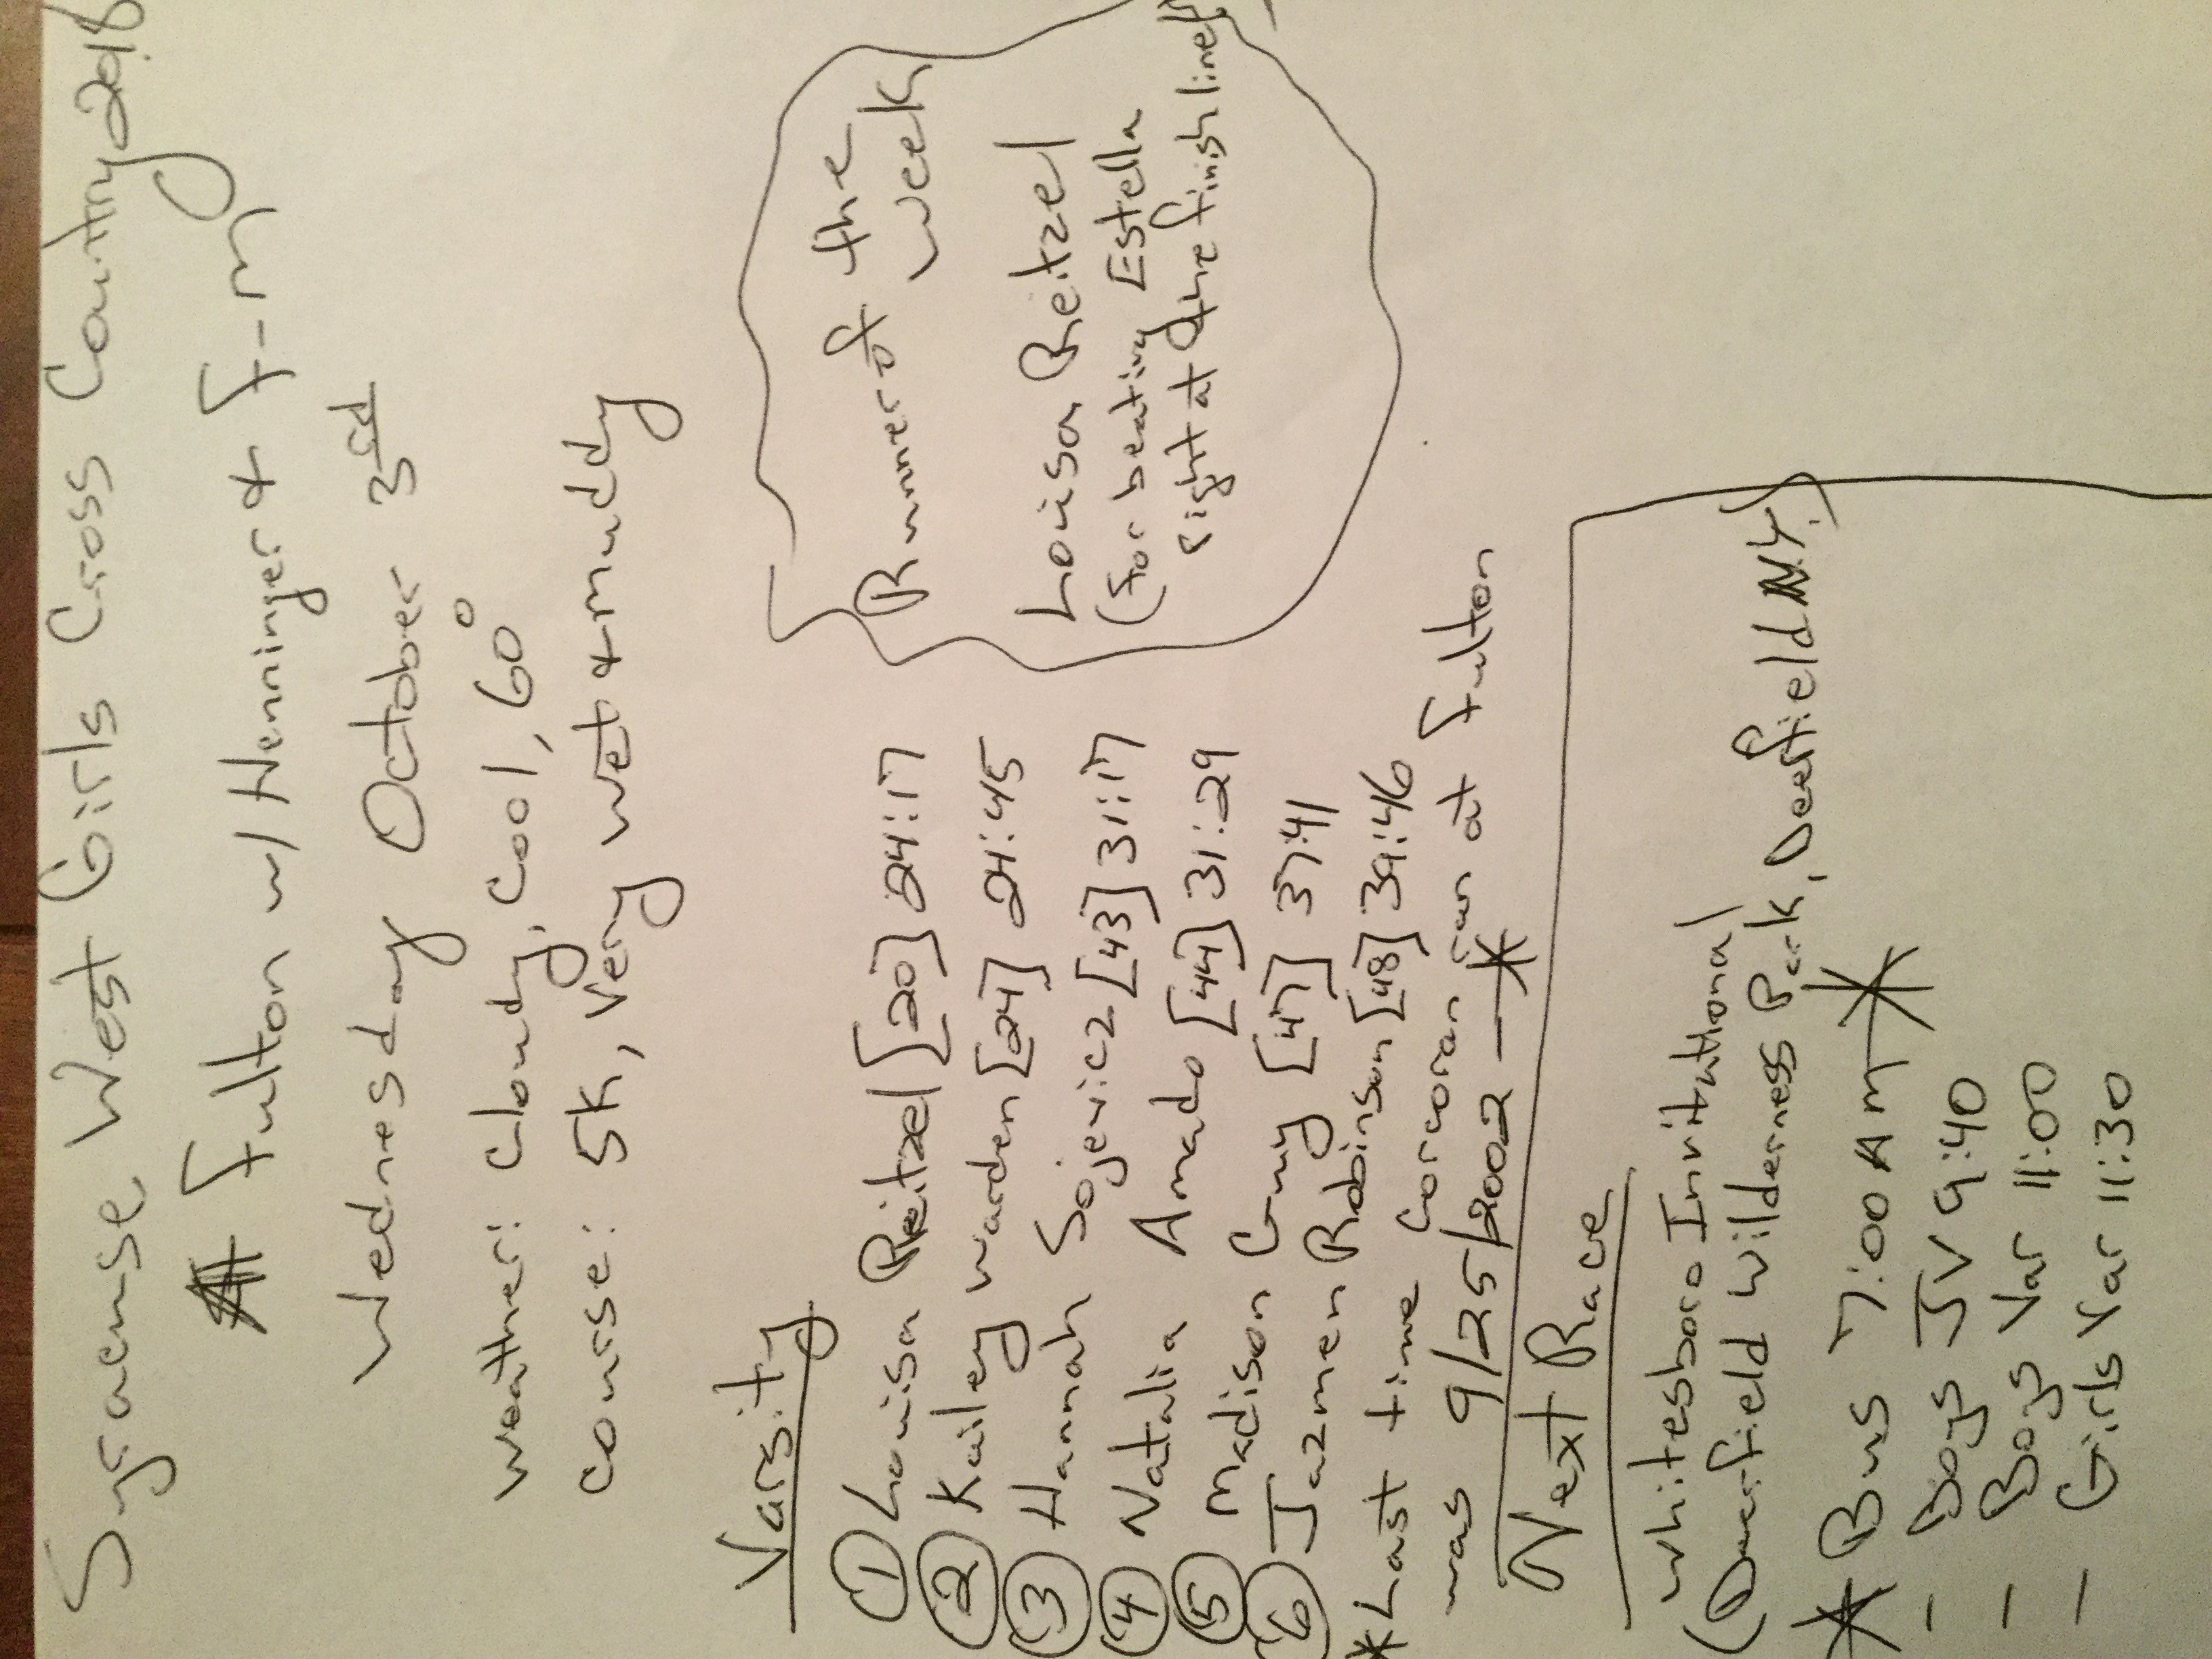 Syracuse West Girls Cross Country 2018
At Fulton w/ Henninger & F-M
Wednesday October 3rd
Weather: Cloudy, Cool, 60°
Course: 5K, Very Wet & Muddy
Varsity
1 Louisa Reitzel [20] 24:17
2 Kailey Warden [24] 24:45
3 Hannah Sojevicz [43] 31:17
4 Natalia Amado [44] 31:29
5 Madison Guy [47] 37:41
6 Jazmen Robinson [48] 39:46
*Last time Corcoran ran at Fulton
was 9/25/2002 —*
Runner of the
Week
Louisa Reitzel
(for beating Estella
right at the finish line!)
Next Race
Whitesboro Invitational
(Deerfield Wilderness Park, Deerfield N.Y.)
* Bus 7:00 AM *
- Boys JV 9:40
- Boys Var 11:00
- Girls Var 11:30